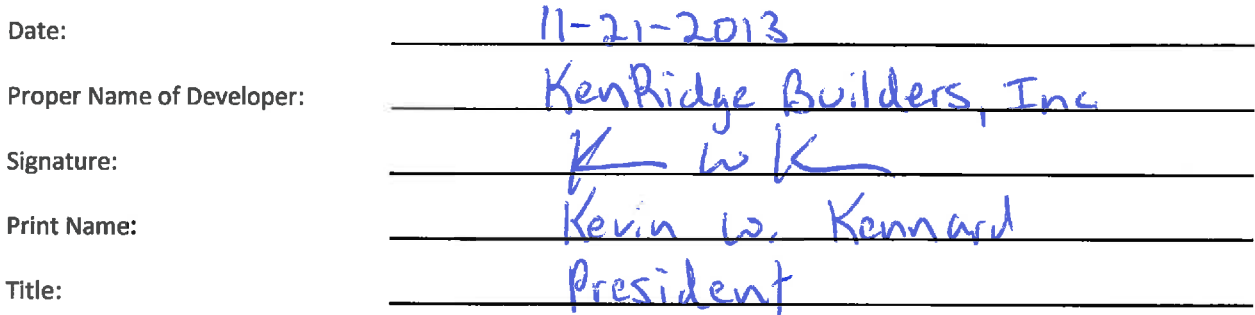 Date: 11-21-2013
Proper Name of Developer: KenRidge Builders, Inc
Signature: K W K
Print Name: Kevin W. Kennard
Title: President